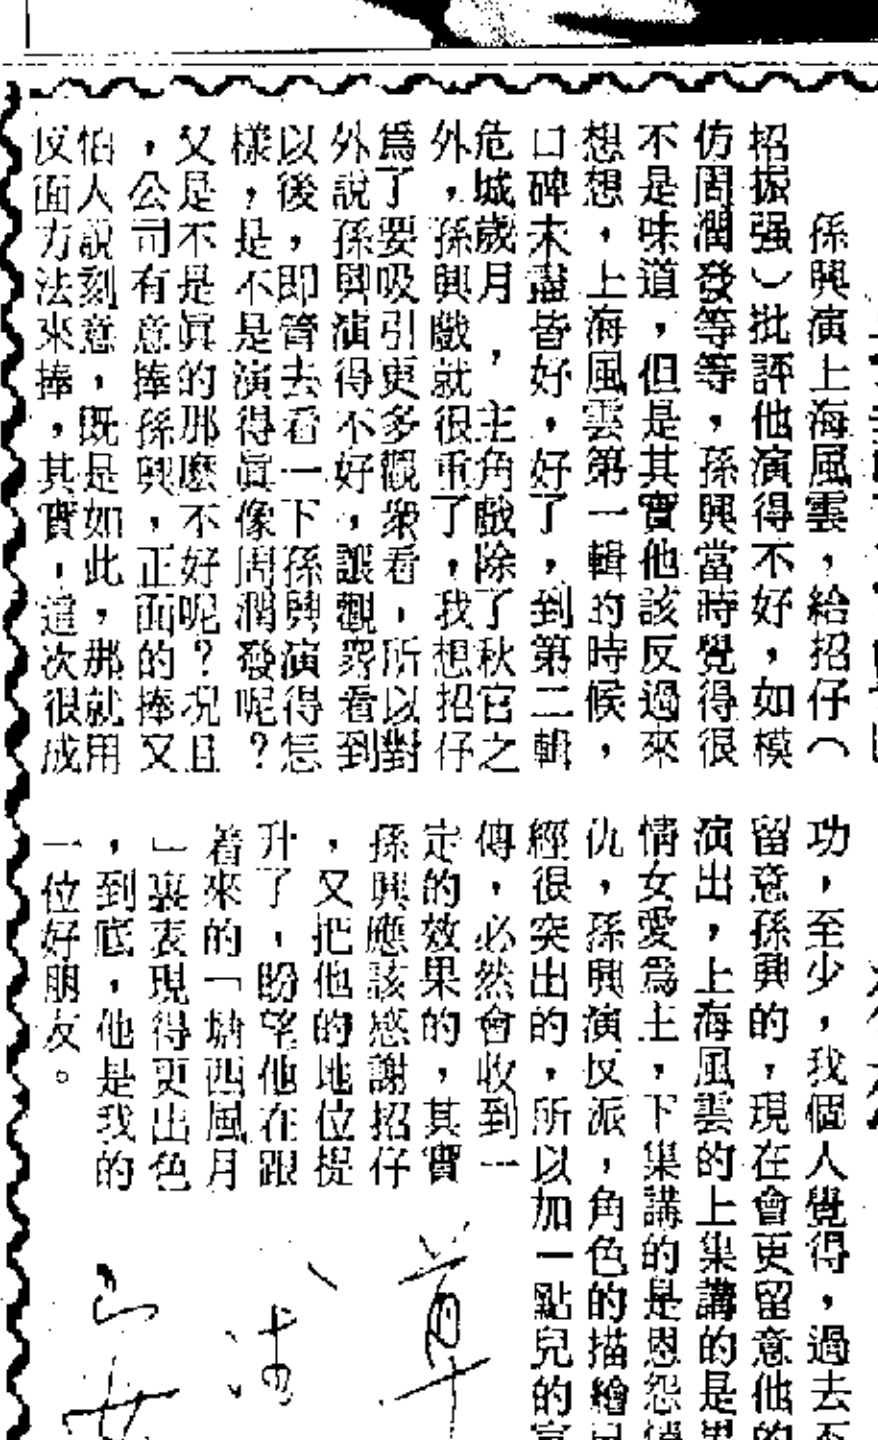 孫興演上海風雲，給招仔（
招振强）批評他演得不好，如模
仿周潤發等等，孫興當時覺得很
不是味道，但是其實他該反過來
想想，上海風雲第一輯的時候，
口碑未盡皆好，好了，到第二輯
危城歲月，主角戲除了秋官之
外，孫興戲就很重了，我想招仔
爲了要吸引更多觀衆看，所以對
外說孫興演得不好，讓觀衆看到
以後，即管去看一下孫興演得怎
樣，是不是演得眞像周潤發呢？
又是不是眞的那麼不好呢？况且
，公司有意捧孫興，正面的捧又
怕人說刻意，既是如此，那就用
反面方法來捧，其實，這次很成
功，至少，我個人覺得，過去不
留意孫興的，現在會更留意他的
演出，上海風雲的上集講的是男
情女愛爲主，下集講的是恩怨情
仇，孫興演反派，角色的描繪已
經很突出的，所以加一點兒的宣
傳，必然會收到一
定的效果的，其實
孫興應該感謝招仔
，又把他的地位提
升了，盼望他在跟
着來的「塘西風月
」裏表現得更出色
，到底，他是我的
一位好朋友。